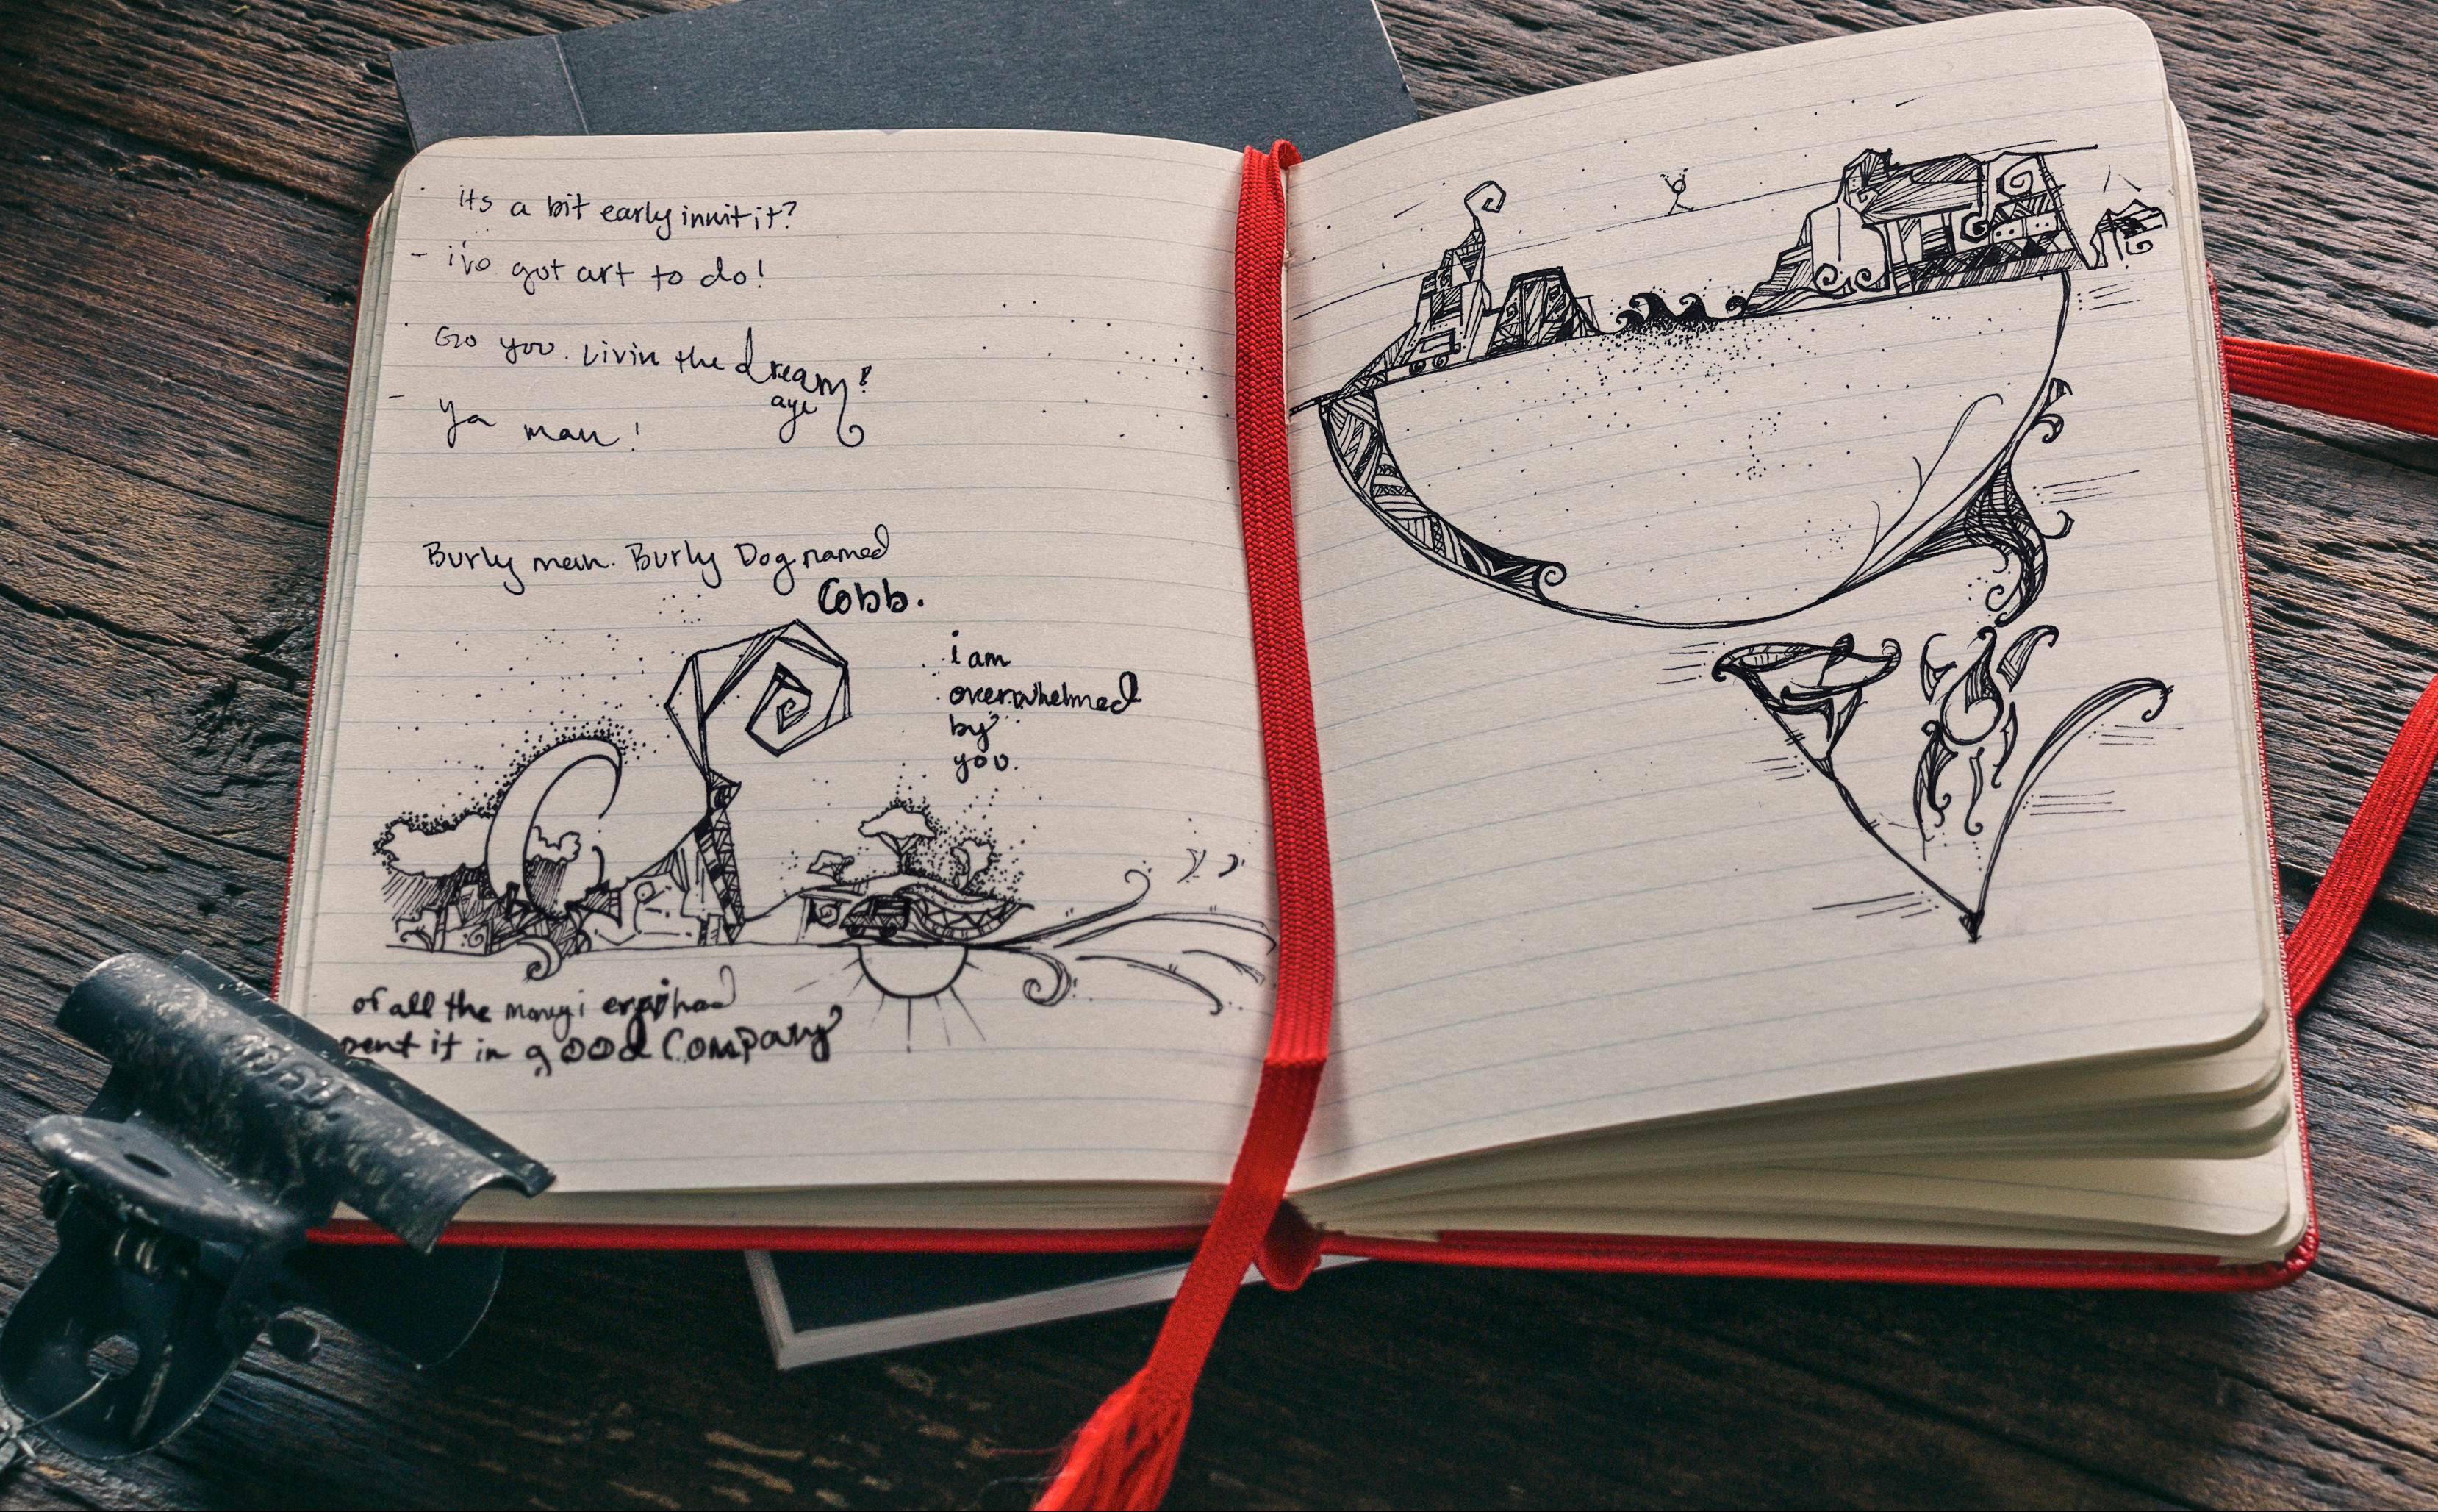 its a bit early innit it?
- i've got art to do!
Go you. Livin the dream!
aye
- ya man!
Burly man. Burly Dog named
Cobb.
i am
overwhelmed
by
you.
of all the money i had
it in good Company